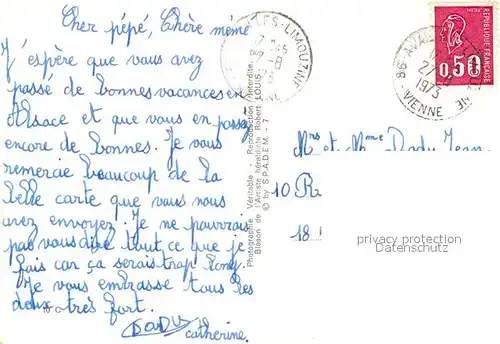 Cher pépé, Chère mémé
J'éspère que vous avez
passé de bonnes vacances en
Alsace et que vous en passez
encore de bonnes. Je vous
remercie beaucoup de la
belle carte que vous nous
avez envoyez. Je ne pourrais
pas vous dire tout ce que je
fais car ça serais trop long.
Je vous embrasse tous les
deux très fort.
DADU
catherine.
Photographie Véritable - Reproduction Interdite
Blason de l'Artiste Héraldiste Robert LOUIS
© by S.P.A.D.E.M. - 7
LES-LIMOUZINE
-8
86 AVAI
27
1973
VIENNE
REPUBLIQUE FRANÇAISE
0,50
Mrs et Mme Dadu Jean
10 R
18
privacy protection
Datenschutz